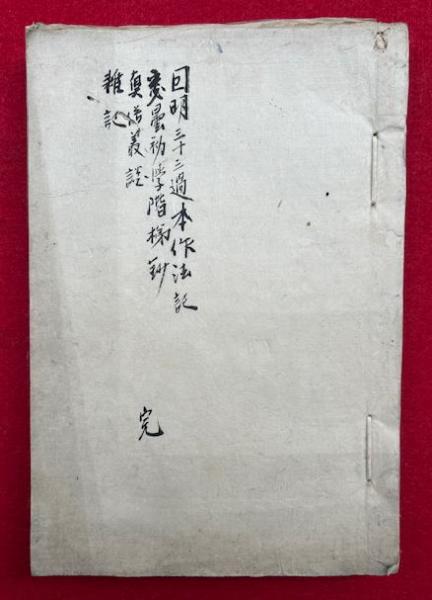 因明三十三過本作法記
悉曇初學階梯鈔
真義
雜記
完